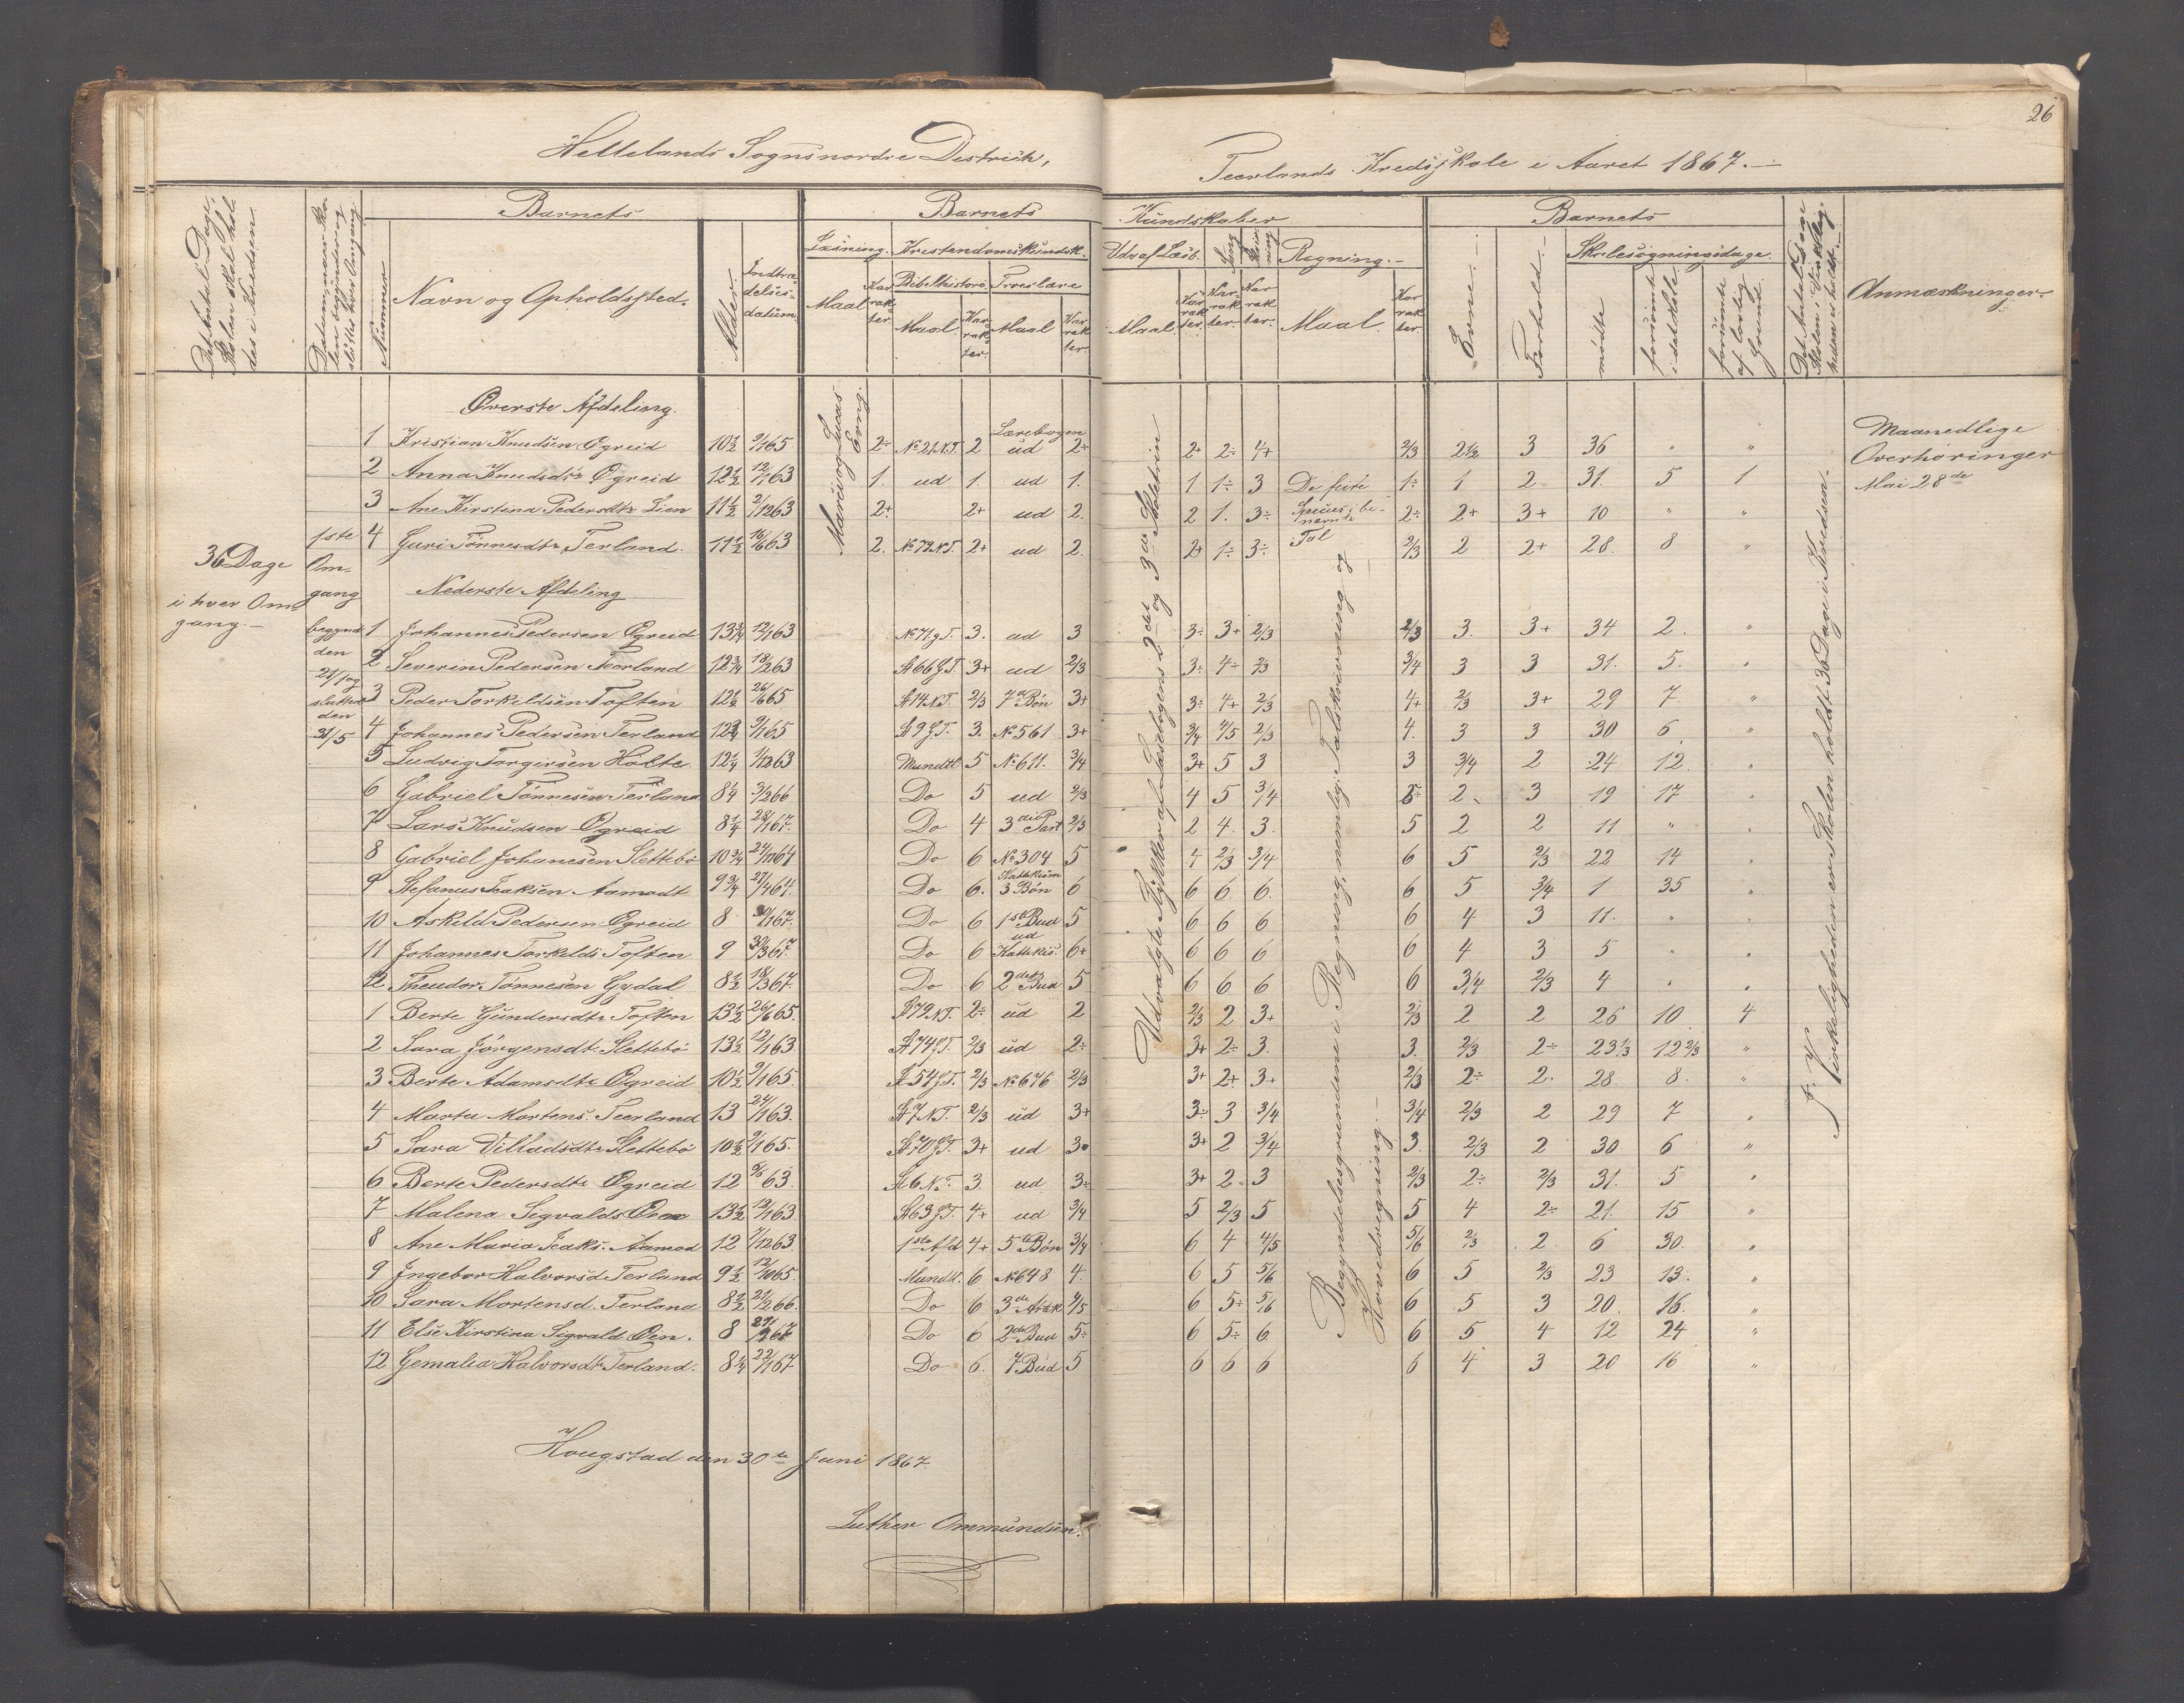 26
Hellelands Sognsnordre Destrickt,
Teerlands Kredsskole i Aaret 1867.
Barnets
Barnets
Kundskaber
Barnets
Læsning. Kristendomskundsk.
Udv af Læsb.
Regning.
Skolesøgningsdage
Navn og Opholdssted.
Nummer
Alder
Indtræ-
delses-
datum
Maal
Karrakter
Bibelhistorie
Troeslære
Maal
Maal
Maal
Maal
Evne
Forhold
mødte
forsømte i det Hele
forsømte af lovlig Grund
Anmærkninger
Øverste Afdeling.
Marcus og Lucas Evng.
Lærebogen
1 Kristian Knudsen Øgreid 10½ 9/1 65 2÷ No 21 N.T. 2 ud 2+ 2+ 2÷ 4+ 2/3 2½ 3 36 " "
2 Anna Knudsdtr Øgreid 12½ 12/1 63 1. ud 1. ud 1. 1 1÷ 3 De fire 1÷ 1 2 31. 5 1
3 Ane Kirstina Pedersdtr Lien 11½ 2/12 63 2+ 2+ ud 2. 2 1. 3÷ Species i be-
nævnte 2÷ 2+ 3+ 10 " "
4 Guri Tønnesdtr Terland. 11½ 16/6 63 2. No 72 N.T. 2+ ud 2. 2+ 1÷ 3÷ Tal 2/3 2 2+ 28. 8 "
Maanedlige
Overhøringer
Mai 28de
36 Dage
i hver Om-
gang.
1ste
Om-
gang
begynd
den
21/1 og
sluttes
den
31/5
Nederste Afdeling
1 Johannes Pedersen Øgreid 13¾ 12/1 63 No 71 g T. 3. ud 3 3÷ 3+ 2/3 2/3 3. 3+ 34 2. "
2 Severin Pedersen Teerland 12¾ 18/2 63 No 66 G.T. 3+ ud 2/3 3÷ 4÷ 2/3 3/4 3 3 31. 5. "
3 Peder Torkildsen Toften 12½ 26/6 65 No 14 N.T. 2/3 7de Bøn 3+ 3÷ 4+ 2/3 4+ 2/3 3+ 29 7 "
4 Johannes Pedersen Terland 12¾ 9/1 65 No 9 G.T. 3. No 561 3+ 3/4 4/5 2/3 4. 3 3 30 6. "
5 Ludvig Torgersen Holte. 12¼ 1/12 63 Mundtl 5 No 611. 3/4 3+ 5 3 3 3/4 2 24 12. "
6 Gabriel Tønnesen Terland 8¼ 3/2 66 Do 5 ud 2/3 4 5 3/4 5÷ 2 3 19 17 "
7 Lars Knudsen Øgreid 8¼ 28/1 67. Do 4 3die Part 2/3 2 4. 3. 5 2 2 11 " "
8 Gabriel Johanesen Slettebø 10¾ 24/11 64 Do 6 No 304 5 4 2/3 3/4 6 5 2/3 22 14 "
9 Stefanus Isaksen Aamodt 9¾ 27/4 64. Do 6. Kattekism
3 Bøn 6 6 6 6. 6 5 3/4 1 35 "
10 Askild Pedersen Øgreid 8 Do 6 1ste Bud 5 6 6 6 6 4 3 11. " "
11 Johannes Torkilds Toften 9 30/3 67. Do 6 ud
Kattekis. 6+ 6 6 6 6 4 3 5 " "
12 Theodor Tønnesen Gydal 8½ 18/3 67. Do 6 2det Bud 5 6 6 6 6 3/4 2/3 4 " "
1 Berte Gundersdtr Toften 13½ 26/6 65. No 72 N.T. 2÷ ud 2 2/3 2 3+ 2/3 2 2 26 10. 4
2 Sara Jørgensdt. Slettebø 13½ 12/1 63 No 74 G.T. 2/3 ud 2÷ 3+ 2÷ 3. 3. 2/3 2÷ 23⅓ 12⅔ "
3 Berte Adamsdtr Øgreid 10½ 9/1 65. No 54 G.T. 2/3 No 676 2/3 3+ 2+ 3+ 2/3 2÷ 2. 28. 8. "
4 Marta Mortens. Teerland 13 24/1 63. No 7 N.T. 2/3 ud 3+ 3÷ 3 3/4 3/4 2/3 2 29 7 "
5 Sara Villadsdtr Slettebø 10½ 9/1 65. No 70 G.T. 3+ ud 3. 3+ 2 3/4 3. 2/3 2 30 6 "
6 Berte Pedersdtr Øgreid 12 63. No 6 N.T. 3. ud 3÷ 3+ 2 3 2/3 2÷ 2/3 31. 5 "
7 Malena Sigvalds Øen 13½ 12/1 63. No 63 G.T. 4+ ud 3/4 5 2/3 5 5 4 2÷ 21. 15 "
8 Ane Maria Isaks. Aamod 12 1/12 63 1ste Afd 4+ 5te Bøn 3/4 6 4 4/5 5/6 2/3 2 6 30. "
9 Ingebor Halvorsd Terland 9½ 12/10 65. Mundtl. 6 No 648 4. 6 5 5/6 6 5 2/3 23 13. "
10 Sara Mortensd. Terland 8½ 21/2 66. Do 6 3de Artik 4/5 6 5÷ 5/6 6 5 3 20. 16. "
11 Else Kirstina Sigvald Øen. 8 Do 6 2det Bud 5÷ 6 5÷ 6 6 5 4 12 24 "
12 Gemalia Halvorsdt Terland. 8¼ 22/1 67 Do 6. 7 Bud 5 6 6 6 6 4 3 20 16 "
Udvalgte Stykker af Læsebogens 2det og 3die Skoletrin
Begyndelsesgrundene i Regning, nemlig: Talskrivning og
Hovedregning.
I Virkeligheden er Skolen holdt 36 Dage i Kredsen.
Hougstad den 30te Juni 1867.
Luther Ommundsen.